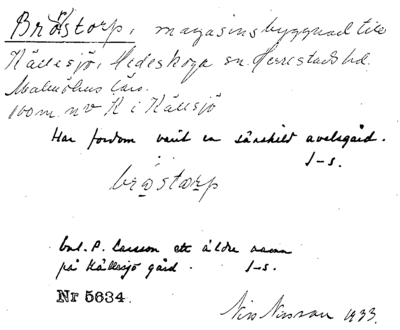 Bröstorp, magasinsbyggnad till
Källesjö, Hedeskoga sn. Herrestads hd.
Malmöhus län.
100 m. nv R i Källsjö
Har fordom varit en särskild avelsgård.
I-s.
brωstɑrp
enl. P. Larsson ett äldre namn
på Källesjö gård. I-s.
Nr 5634.
Nils Nilsson 1933.